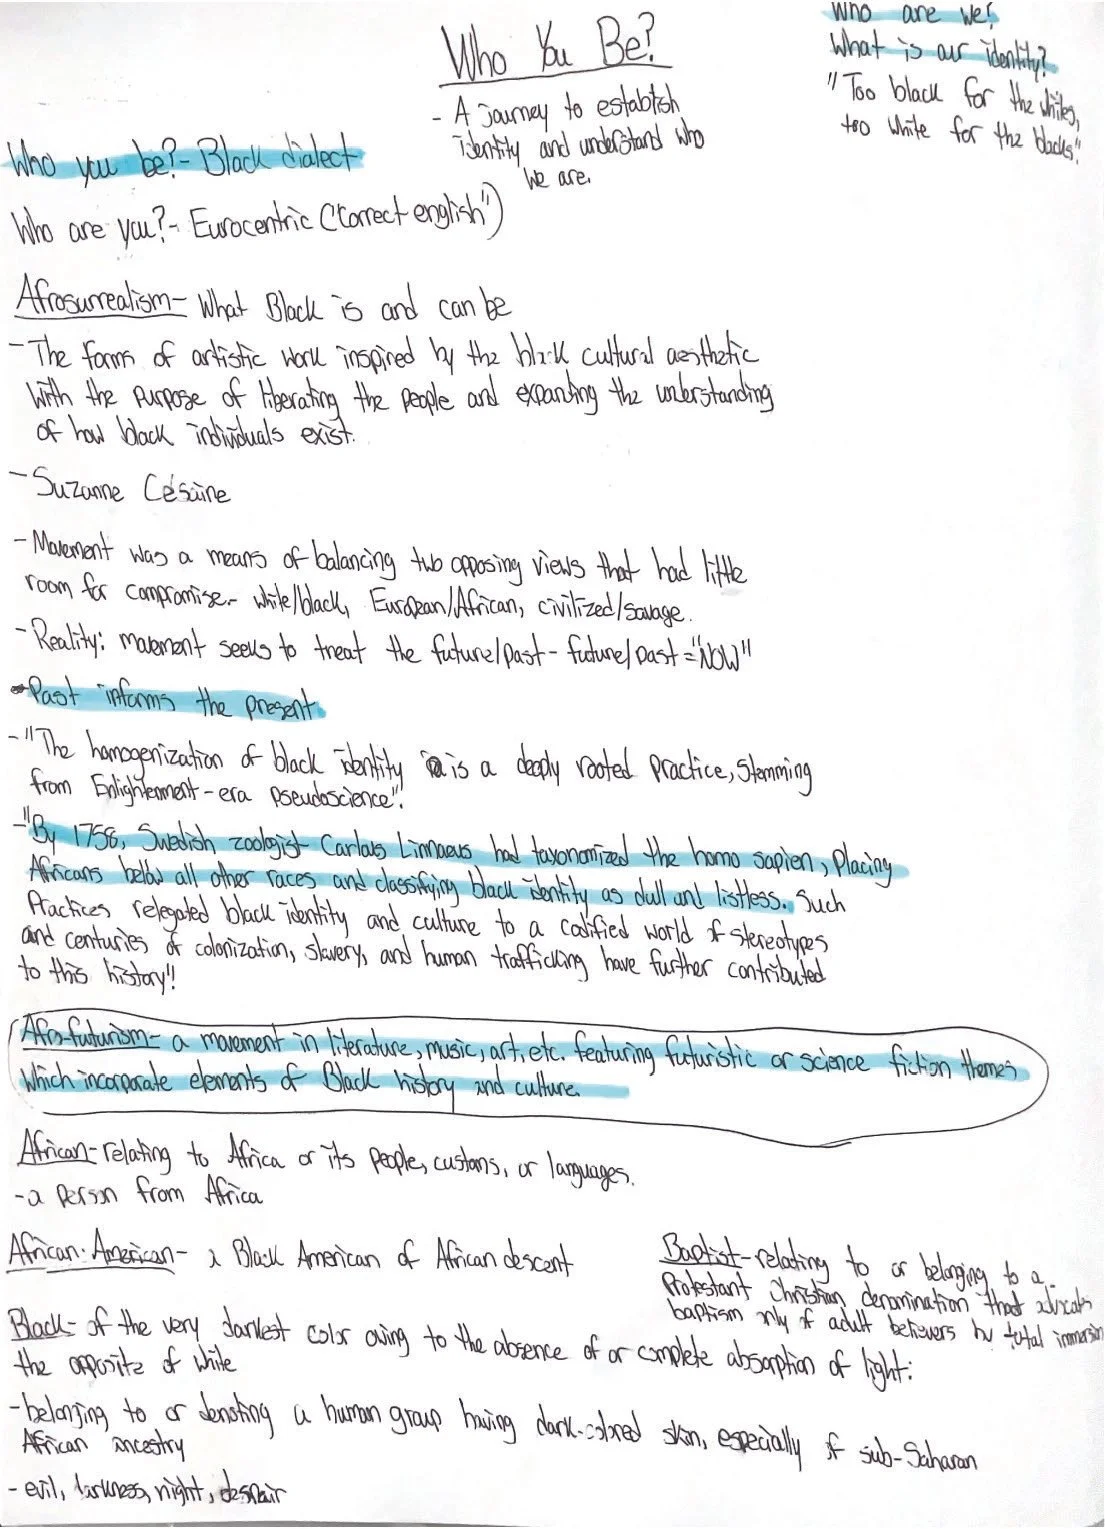 Who You Be?
- A journey to establish
identity and understand who
we are.
Who are we?
What is our identity?
"Too black for the whites,
too white for the blacks".
Who you be? - Black dialect
Who are you? - Eurocentric ("Correct english")
Afrosurrealism - What Black is and can be
- The forms of artistic work inspired by the black cultural aesthetic
With the purpose of liberating the people and expanding the understanding
of how black individuals exist.
- Suzanne Césaire
- Movement was a means of balancing two opposing views that had little
room for compromise - white/black, European/African, civilized/savage.
- Reality: movement seeks to treat the future/past - future/past = "NOW"
- Past informs the present
- "The homogenization of black identity is a deeply rooted practice, stemming
from Enlightenment-era pseudoscience".
- "By 1758, Swedish zoologist Carlous Linnaeus had taxonomized the homo sapien, placing
Africans below all other races and classifying black identity as dull and listless. Such
Practices relegated black identity and culture to a codified world of stereotypes
and centuries of colonization, slavery, and human trafficking have further contributed
to this history".
Afro-futurism - a movement in literature, music, art, etc. featuring futuristic or science fiction themes
which incorporate elements of Black history and culture.
African - relating to Africa or its people, customs, or languages.
- a person from Africa
African-American - a Black American of African descent
Baptist - relating to or belonging to a
Protestant Christian denomination that advocates
baptism only of adult believers by total immersion
Black - of the very darkest color owing to the absence of or complete absorption of light:
the opposite of white
- belonging to or denoting a human group having dark-colored skin, especially of sub-Saharan
African ancestry
- evil, darkness, night, despair